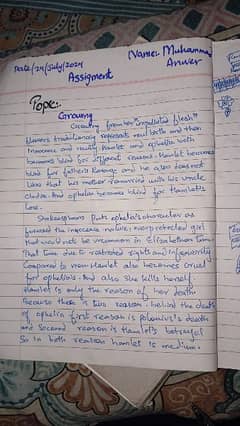 Date/24/July/2024
Name:- Muhammad
Anwer
Assigment
Tope:-
Growing
Growing from her "unpolluted flesh"
flowers traditionary represents real both and then
innocence and reality Hamlet and ophelia both
becomes blind for different reasons. Hamlet becomes
blind for fathers Revenge and he also does not
like that his mother remarried with his uncle
cladius. And ophelia becomes blind for Hamlet's
love.
Shakesspears puts ophelia's character as
innocent nature, niece, protected girl
that would not be uncommon in Elizabethan time
That time due to restricted rights and inferiority
Compared to man Hamlet also becomes cruel
for ophelia's. And also She kills herself
Hamlet is only the reason of her death
because there is two reason behind the death
of ophelia first reason is polonius's death
and Second reason is Hamlet's betrayal
So in both reason hamlet is medium.